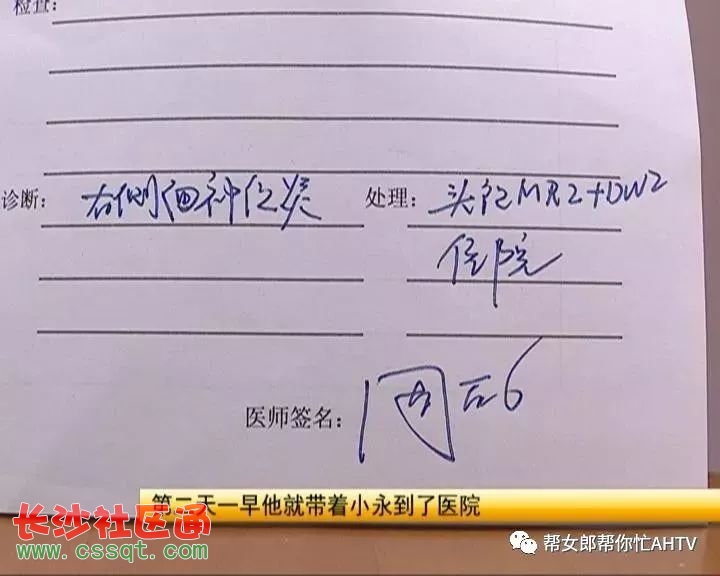 检查:
诊断: 右侧面神经炎 处理: 头颅MRI+DWI
住院
医师签名:
第二天一早他就带着小永到了医院
长沙社区通
www.cssqt.com
帮女郎帮你忙AHTV